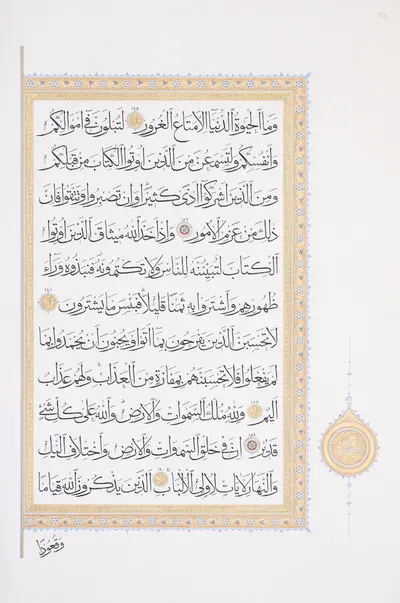 وما الحيوة الدنيا الا متاع الغرور لتبلون في اموالكم
وانفسكم ولتسمعن من الذين اوتوا الكتاب من قبلكم
ومن الذين اشركوا اذى كثيرا وان تصبروا وتتقوا فان
ذلك من عزم الامور واذ اخذ الله ميثاق الذين اوتوا
الكتاب لتبيننه للناس ولا تكتمونه فنبذوه وراء
ظهورهم واشتروا به ثمنا قليلا فبئس ما يشترون
لا تحسبن الذين يفرحون بما اتوا ويحبون ان يحمدوا بما
لم يفعلوا فلا تحسبنهم بمفازة من العذاب ولهم عذاب
اليم ولله ملك السموات والارض والله على كل شئ
قدير ان في خلق السموات والارض واختلاف اليل
والنهار لايات لاولي الالباب الذين يذكرون الله قياما
وقعودا